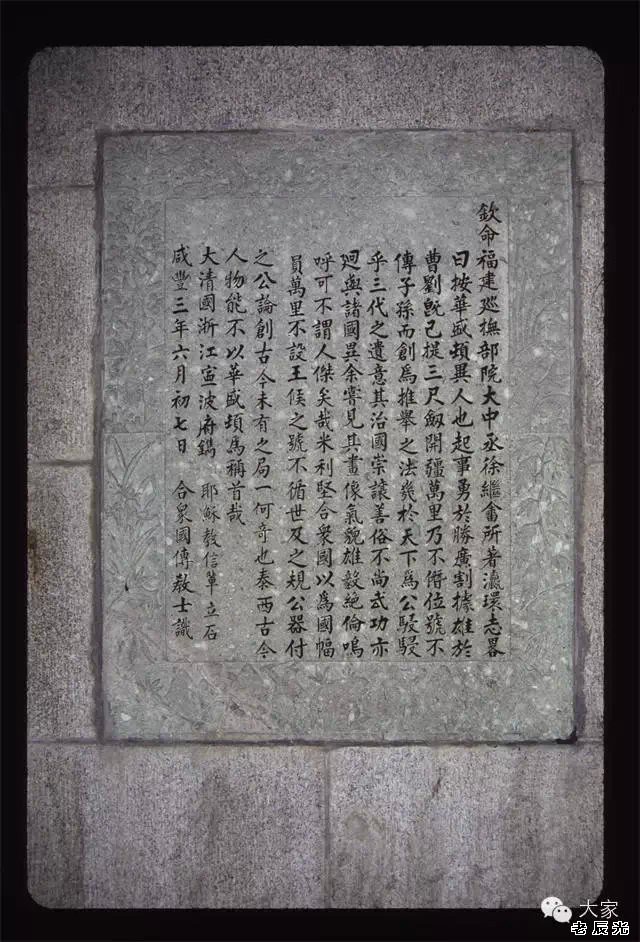 欽命福建巡撫部院大中丞徐繼畬所著瀛環志畧
曰按華盛頓異人也起事勇於勝廣割據雄於
曹劉既已提三尺劍開疆萬里乃不僭位號不
傳子孫而創為推舉之法幾於天下為公駸駸
乎三代之遺意其治國崇讓善俗不尚武功亦
迥與諸國異余嘗見其畫像氣貌雄毅絕倫嗚
呼可不謂人傑矣哉米利堅合衆國以為國幅
員萬里不設王侯之號不循世及之規公器付
之公論創古今未有之局一何奇也泰西古今
人物能不以華盛頓為稱首哉
大清國浙江寧波府鐫 耶穌教信輩立石
咸豐三年六月初七日 合衆國傳教士識
大家
老辰光